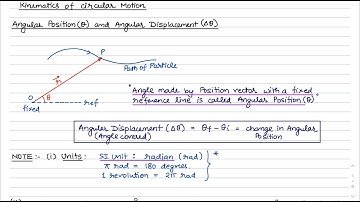 Kinematics of Circular Motion
Angular Position (θ) and Angular Displacement (Δθ)
P
Path of Particle
r
O
θ
ref
fixed
"Angle made by Position vector with a fixed
reference line is called Angular Position (θ)"
Angular Displacement (Δθ) = θf - θi = change in Angular
(Angle covered)
Position
NOTE:- (i) Units: SI unit: radian (rad)
π rad = 180 degrees.
1 revolution = 2π rad
*